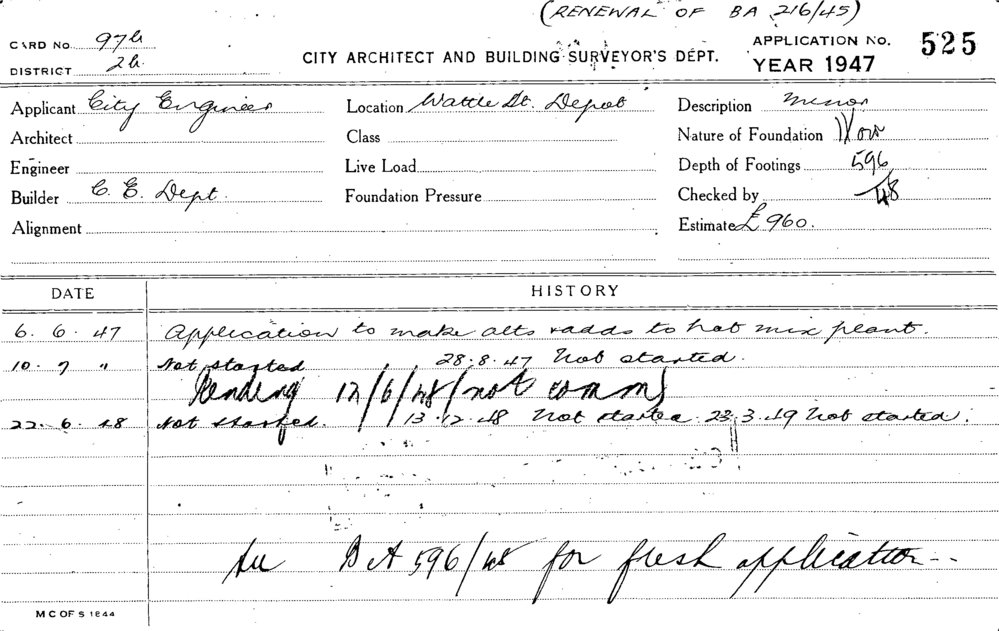 (RENEWAL OF BA 216/45)
CARD No. 97b
DISTRICT 2b
CITY ARCHITECT AND BUILDING SURVEYOR'S DEPT.
APPLICATION No. 525
YEAR 1947
Applicant City Engineer
Location Wattle St. Depot
Description Minor
Architect
Class
Nature of Foundation Now
Engineer
Live Load
Depth of Footings 596
Builder C. E. Dept.
Foundation Pressure
Checked by 48
Alignment
Estimate £960.
DATE HISTORY
6. 6. 47 Application to make alts & adds to hot mix plant.
10. 7 " Not started 28.8.47 Not started.
Pending 12/6/48/not comm)
22. 6. 48 Not started. 13.12.48 Not started. 23.3.49 Not started.
See BA 596/48 for fresh application--
M C OF S 1844